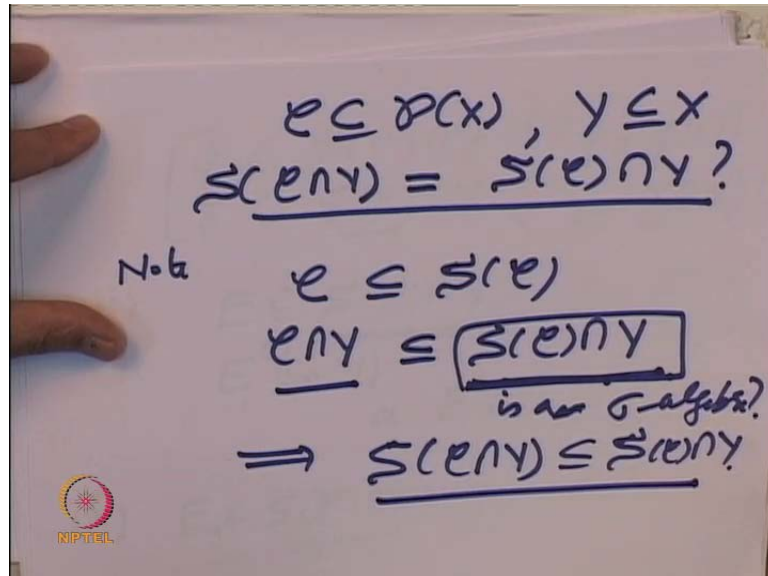 𝒞 ⊆ 𝒫(X), Y ⊆ X
S(𝒞∩Y) = S(𝒞)∩Y?
Note
𝒞 ⊆ S(𝒞)
𝒞∩Y ⊆ S(𝒞)∩Y
is a σ-algebra?
⟹ S(𝒞∩Y) ⊆ S(𝒞)∩Y
NPTEL